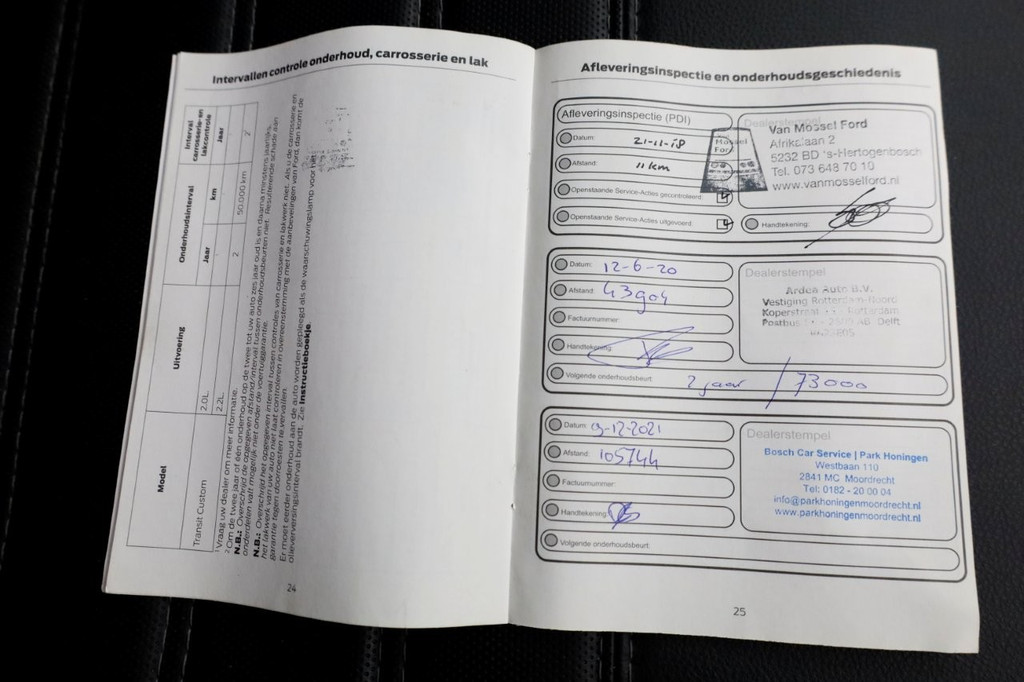 Intervallen controle onderhoud, carrosserie en lak
Model
Uitvoering
Onderhoudsinterval
Interval carrosserie- en lakcontrole
Jaar
km
Jaar
Transit Custom
2.0L
2.2L
2
50.000 km
2
¹ Vraag uw dealer om meer informatie.
² Om de twee jaar of één onderhoud op de twee tot uw auto zes jaar oud is en daarna minstens jaarlijks.
N.B.: Overschrijd de opgegeven afstand/interval tussen onderhoudsbeurten niet. Resulterende schade aan
onderdelen valt mogelijk niet onder de voertuiggarantie.
N.B.: Overschrijd het opgegeven interval tussen controles van carrosserie en lakwerk niet. Als u de carrosserie en
het lakwerk van uw auto niet laat controleren in overeenstemming met de aanbevelingen van Ford, dan komt de
garantie tegen doorroesten te vervallen.
Er moet eerder onderhoud aan de auto worden gepleegd als de waarschuwingslamp voor het
olieverversingsinterval brandt. Zie Instructieboekje.
24
Afleveringsinspectie en onderhoudsgeschiedenis
Afleveringsinspectie (PDI)
Datum: 21-11-18
Afstand: 11 km
Openstaande Service-Acties gecontroleerd:
Openstaande Service-Acties uitgevoerd:
Dealerstempel
Mossel
Ford
Van Mossel Ford
Afrikalaan 2
5232 BD 's-Hertogenbosch
Tel. 073 648 70 10
www.vanmosselford.nl
Handtekening:
Datum: 12-6-20
Afstand: 43904
Factuurnummer:
Handtekening:
Volgende onderhoudsbeurt: 2 jaar / 73000
Dealerstempel
Arden Auto B.V.
Vestiging Rotterdam-Noord
Koperstraat Rotterdam
Postbus AB Delft
Datum: 9-12-2021
Afstand: 105744
Factuurnummer:
Handtekening:
Volgende onderhoudsbeurt:
Dealerstempel
Bosch Car Service | Park Honingen
Westbaan 110
2841 MC Moordrecht
Tel: 0182 - 20 00 04
info@parkhoningenmoordrecht.nl
www.parkhoningenmoordrecht.nl
25